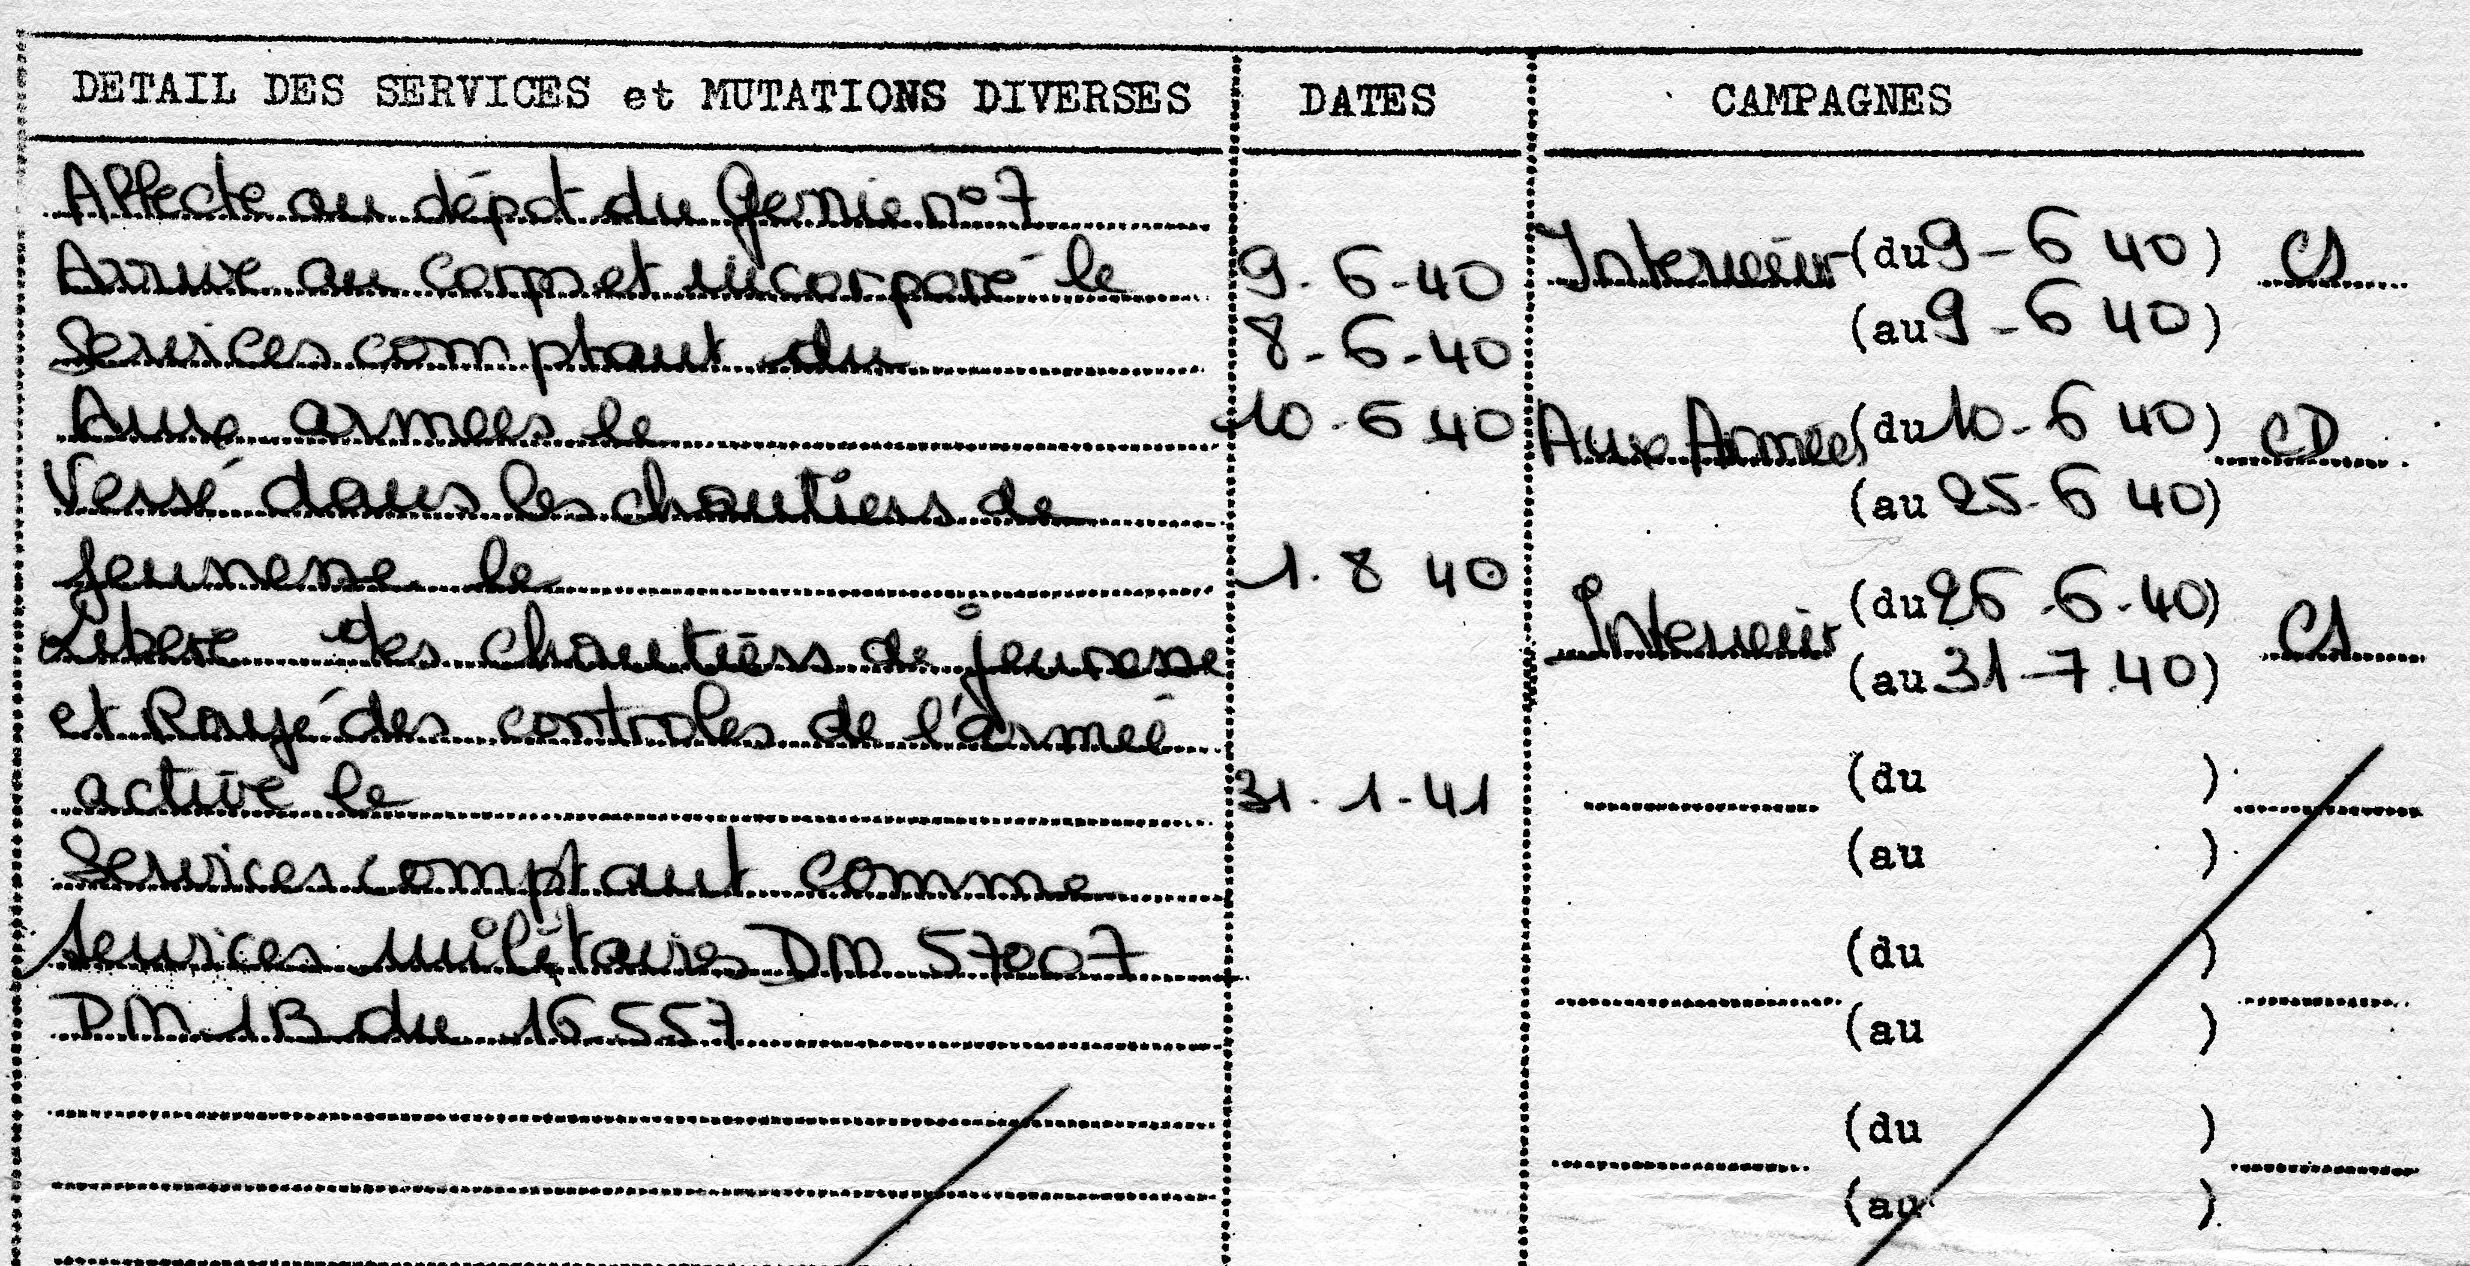 DETAIL DES SERVICES et MUTATIONS DIVERSES DATES CAMPAGNES
Affecte au dépot du Genie n° 7
Arrive au corps et incorporé le 9-6-40 Interieur (du 9-6 40) CS
Services comptant du 8-6-40 (au 9-6 40)
Aux armees le 10-6 40 Aux Armées (du 10-6 40) CD
Versé dans les chantiers de (au 25-6 40)
jeunesse le 1.8 40 Interieur (du 26-6-40) CS
Libere des chantiers de jeunesse (au 31-7.40)
et Rayé des controles de l'armée
active le 31-1-41 (du )
Services comptant comme (au )
services militaires DM 57007 (du )
DM 1B du 16.5.57 (au )
(du )
(au )